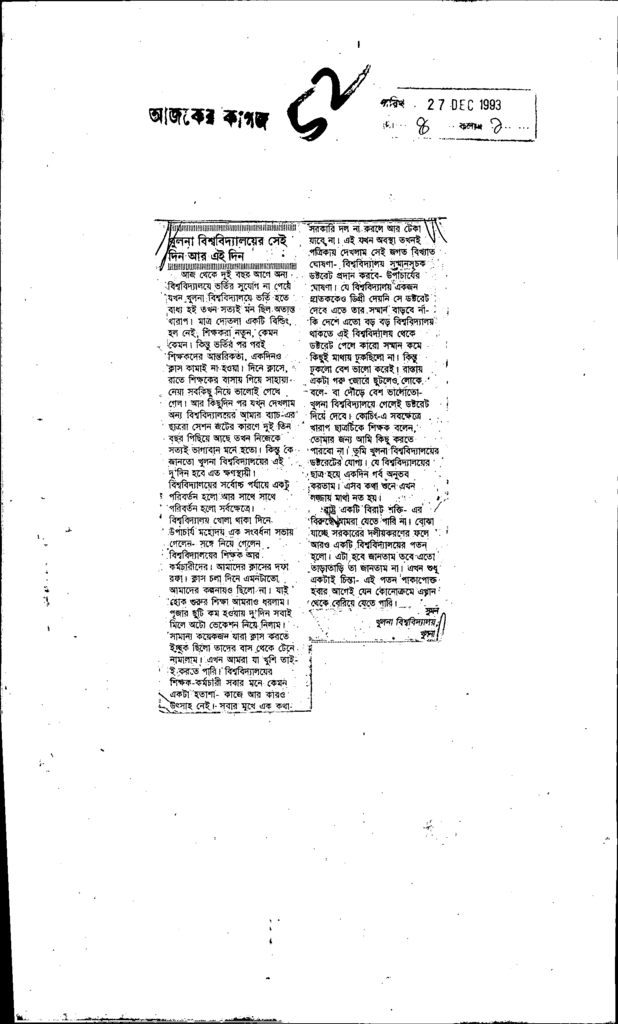 আজকের কাগজ
৫২
তারিখ . 27 DEC 1993
৪ কলাম ১
খুলনা বিশ্ববিদ্যালয়ের সেই
দিন আর এই দিন
আজ থেকে দুই বছর আগে অন্য
বিশ্ববিদ্যালয়ে ভর্তির সুযোগ না পেয়ে
যখন খুলনা বিশ্ববিদ্যালয়ে ভর্তি হতে
বাধ্য হই তখন সত্যই মন ছিল অত্যন্ত
খারাপ। মাত্র দোতলা একটি বিল্ডিং,
হল নেই, শিক্ষকরা নতুন, কেমন
কেমন। কিন্তু ভর্তির পর পরই
শিক্ষকদের আন্তরিকতা, একদিনও
ক্লাস কামাই না হওয়া। দিনে ক্লাসে,
রাতে শিক্ষকের বাসায় গিয়ে সাহায্য
নেয়া সবকিছু নিয়ে ভালোই লেগে
গেল। আর কিছুদিন পর যখন দেখলাম
অন্য বিশ্ববিদ্যালয়ের আমার ব্যাচ-এর
ছাত্ররা সেশন জটের কারণে দুই তিন
বছর পিছিয়ে আছে তখন নিজেকে
সত্যই ভাগ্যবান মনে হতো। কিন্তু কে
জানতো খুলনা বিশ্ববিদ্যালয়ের এই
দু'দিন হবে এত ক্ষণস্থায়ী।
বিশ্ববিদ্যালয়ের সর্বোচ্চ পর্যায়ে একটু
পরিবর্তন হলো আর সাথে সাথে
পরিবর্তন হলো সর্বক্ষেত্রে।
বিশ্ববিদ্যালয় খোলা থাকা দিনে
উপাচার্য মহোদয় এক সংবর্ধনা সভায়
গেলেন- সঙ্গে নিয়ে গেলেন
বিশ্ববিদ্যালয়ের শিক্ষক আর
কর্মচারীদের। আমাদের ক্লাসের দফা
রফা। ক্লাস চলা দিনে এমনটাতো
আমাদের কল্পনায়ও ছিলো না। যাই
হোক গুরুর শিক্ষা আমরাও ধরলাম।
পূজার ছুটি কম হওয়ায় দু'দিন সবাই
মিলে অটো ভেকেশন নিয়ে নিলাম।
সামান্য কয়েকজন যারা ক্লাস করতে
ইচ্ছুক ছিলো তাদের বাস থেকে টেনে
নামালাম। এখন আমরা যা খুশি তাই-
ই করতে পারি। বিশ্ববিদ্যালয়ের
শিক্ষক-কর্মচারী সবার মনে কেমন
একটা হতাশা- কাজে আর কারও
উৎসাহ নেই। সবার মুখে এক কথা-
সরকারি দল না করলে আর টেকা
যাবে না। এই যখন অবস্থা তখনই
পত্রিকায় দেখলাম সেই জগত বিখ্যাত
ঘোষণা- বিশ্ববিদ্যালয় সম্মানসূচক
ডক্টরেট প্রদান করবে- উপাচার্যের
ঘোষণা। যে বিশ্ববিদ্যালয় একজন
গ্রাজুয়েটকেও ডিগ্রী দেয়নি সে ডক্টরেট
দেবে এতে তার সম্মান বাড়বে না-
কি দেশে এতো বড় বড় বিশ্ববিদ্যালয়
থাকতে এই বিশ্ববিদ্যালয় থেকে
ডক্টরেট পেলে কারো সম্মান কমে
কিছুই মাথায় ঢুকছিলো না। কিন্তু
ঢুকলো বেশ ভালো করেই। রাস্তায়
একটা গরু জোরে ছুটলেও লোকে
বলে- বা দৌড়ে বেশ ভালোতো-
খুলনা বিশ্ববিদ্যালয়ে গেলেই ডক্টরেট
দিয়ে দেবে। কোচিং-এ সবক্ষেত্রে
খারাপ ছাত্রটিকে শিক্ষক বলেন,
তোমার জন্য আমি কিছু করতে
পারবো না। তুমি খুলনা বিশ্ববিদ্যালয়ের
ডক্টরেটের যোগ্য। যে বিশ্ববিদ্যালয়ের
ছাত্র হয়ে একদিন গর্ব অনুভব
করতাম। এসব কথা শুনে এখন
লজ্জায় মাথা নত হয়।
রাষ্ট্র একটি বিরাট শক্তি- এর
বিরুদ্ধে আমরা যেতে পারি না। বোঝা
যাচ্ছে সরকারের দলীয়করণের ফলে
আরও একটি বিশ্ববিদ্যালয়ের পতন
হলো। এটা হবে জানতাম তবে এতো
তাড়াতাড়ি তা জানতাম না। এখন শুধু
একটাই চিন্তা- এই পতন পাকাপোক্ত
হবার আগেই যেন কোনোক্রমে এখান
থেকে বেরিয়ে যেতে পারি।
সুমন
খুলনা বিশ্ববিদ্যালয়,
খুলনা